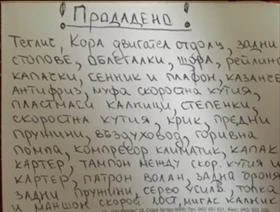 ! Продадено !
Теглич, Кора двигател отдолу, задни
стопове, облегалки, щора, рейлинг
капачки, сенник и плафон, казанче
антифриз, муфа скоростна кутия,
пластмаси калници, степенки,
скоростна кутия, крик, предни
пружини, въздуховод, горивна
помпа, компресор климатик, капак
картер, тампон между скор. кутия и
картер, патрон волан, задна броня
задни пружини, серво усилв., топка
и маншон скорой. лост, мигач калник